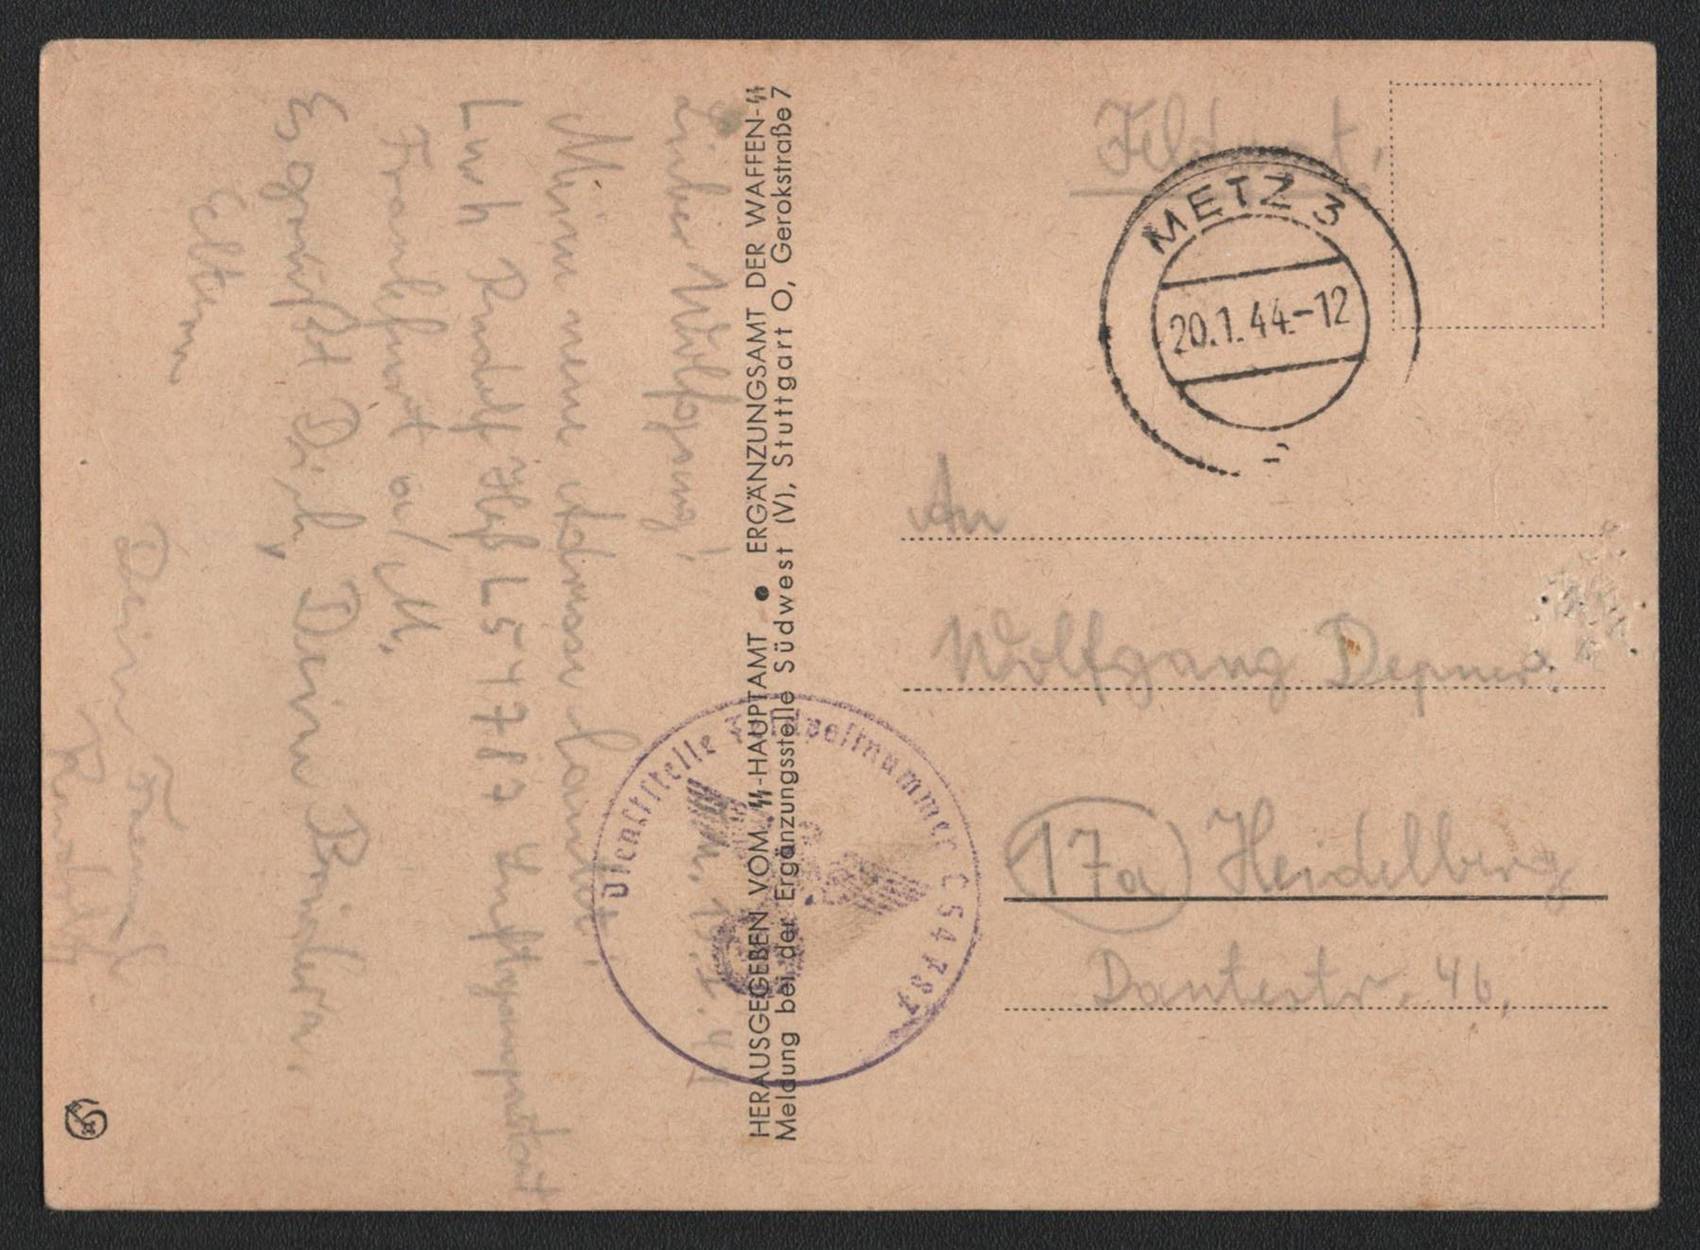 Lieber Wolfgang!
Meine neue Adresse lautet:
L 54787 Luftgaupostamt
Frankfurt a/M.
Es grüßt Dich, Deine Brüder u.
Eltern
Dein Freund
Rudolf
HERAUSGEGEBEN VOM SS-HAUPTAMT • ERGÄNZUNGSAMT DER WAFFEN-SS
Meldung bei der Ergänzungsstelle Südwest (V), Stuttgart O, Gerokstraße 7
Dienststelle Feldpostnummer 54787
Feldpost.
METZ 3
20.1.44.-12
An
Wolfgang Depner.
17a Heidelberg
Dantestr. 46.